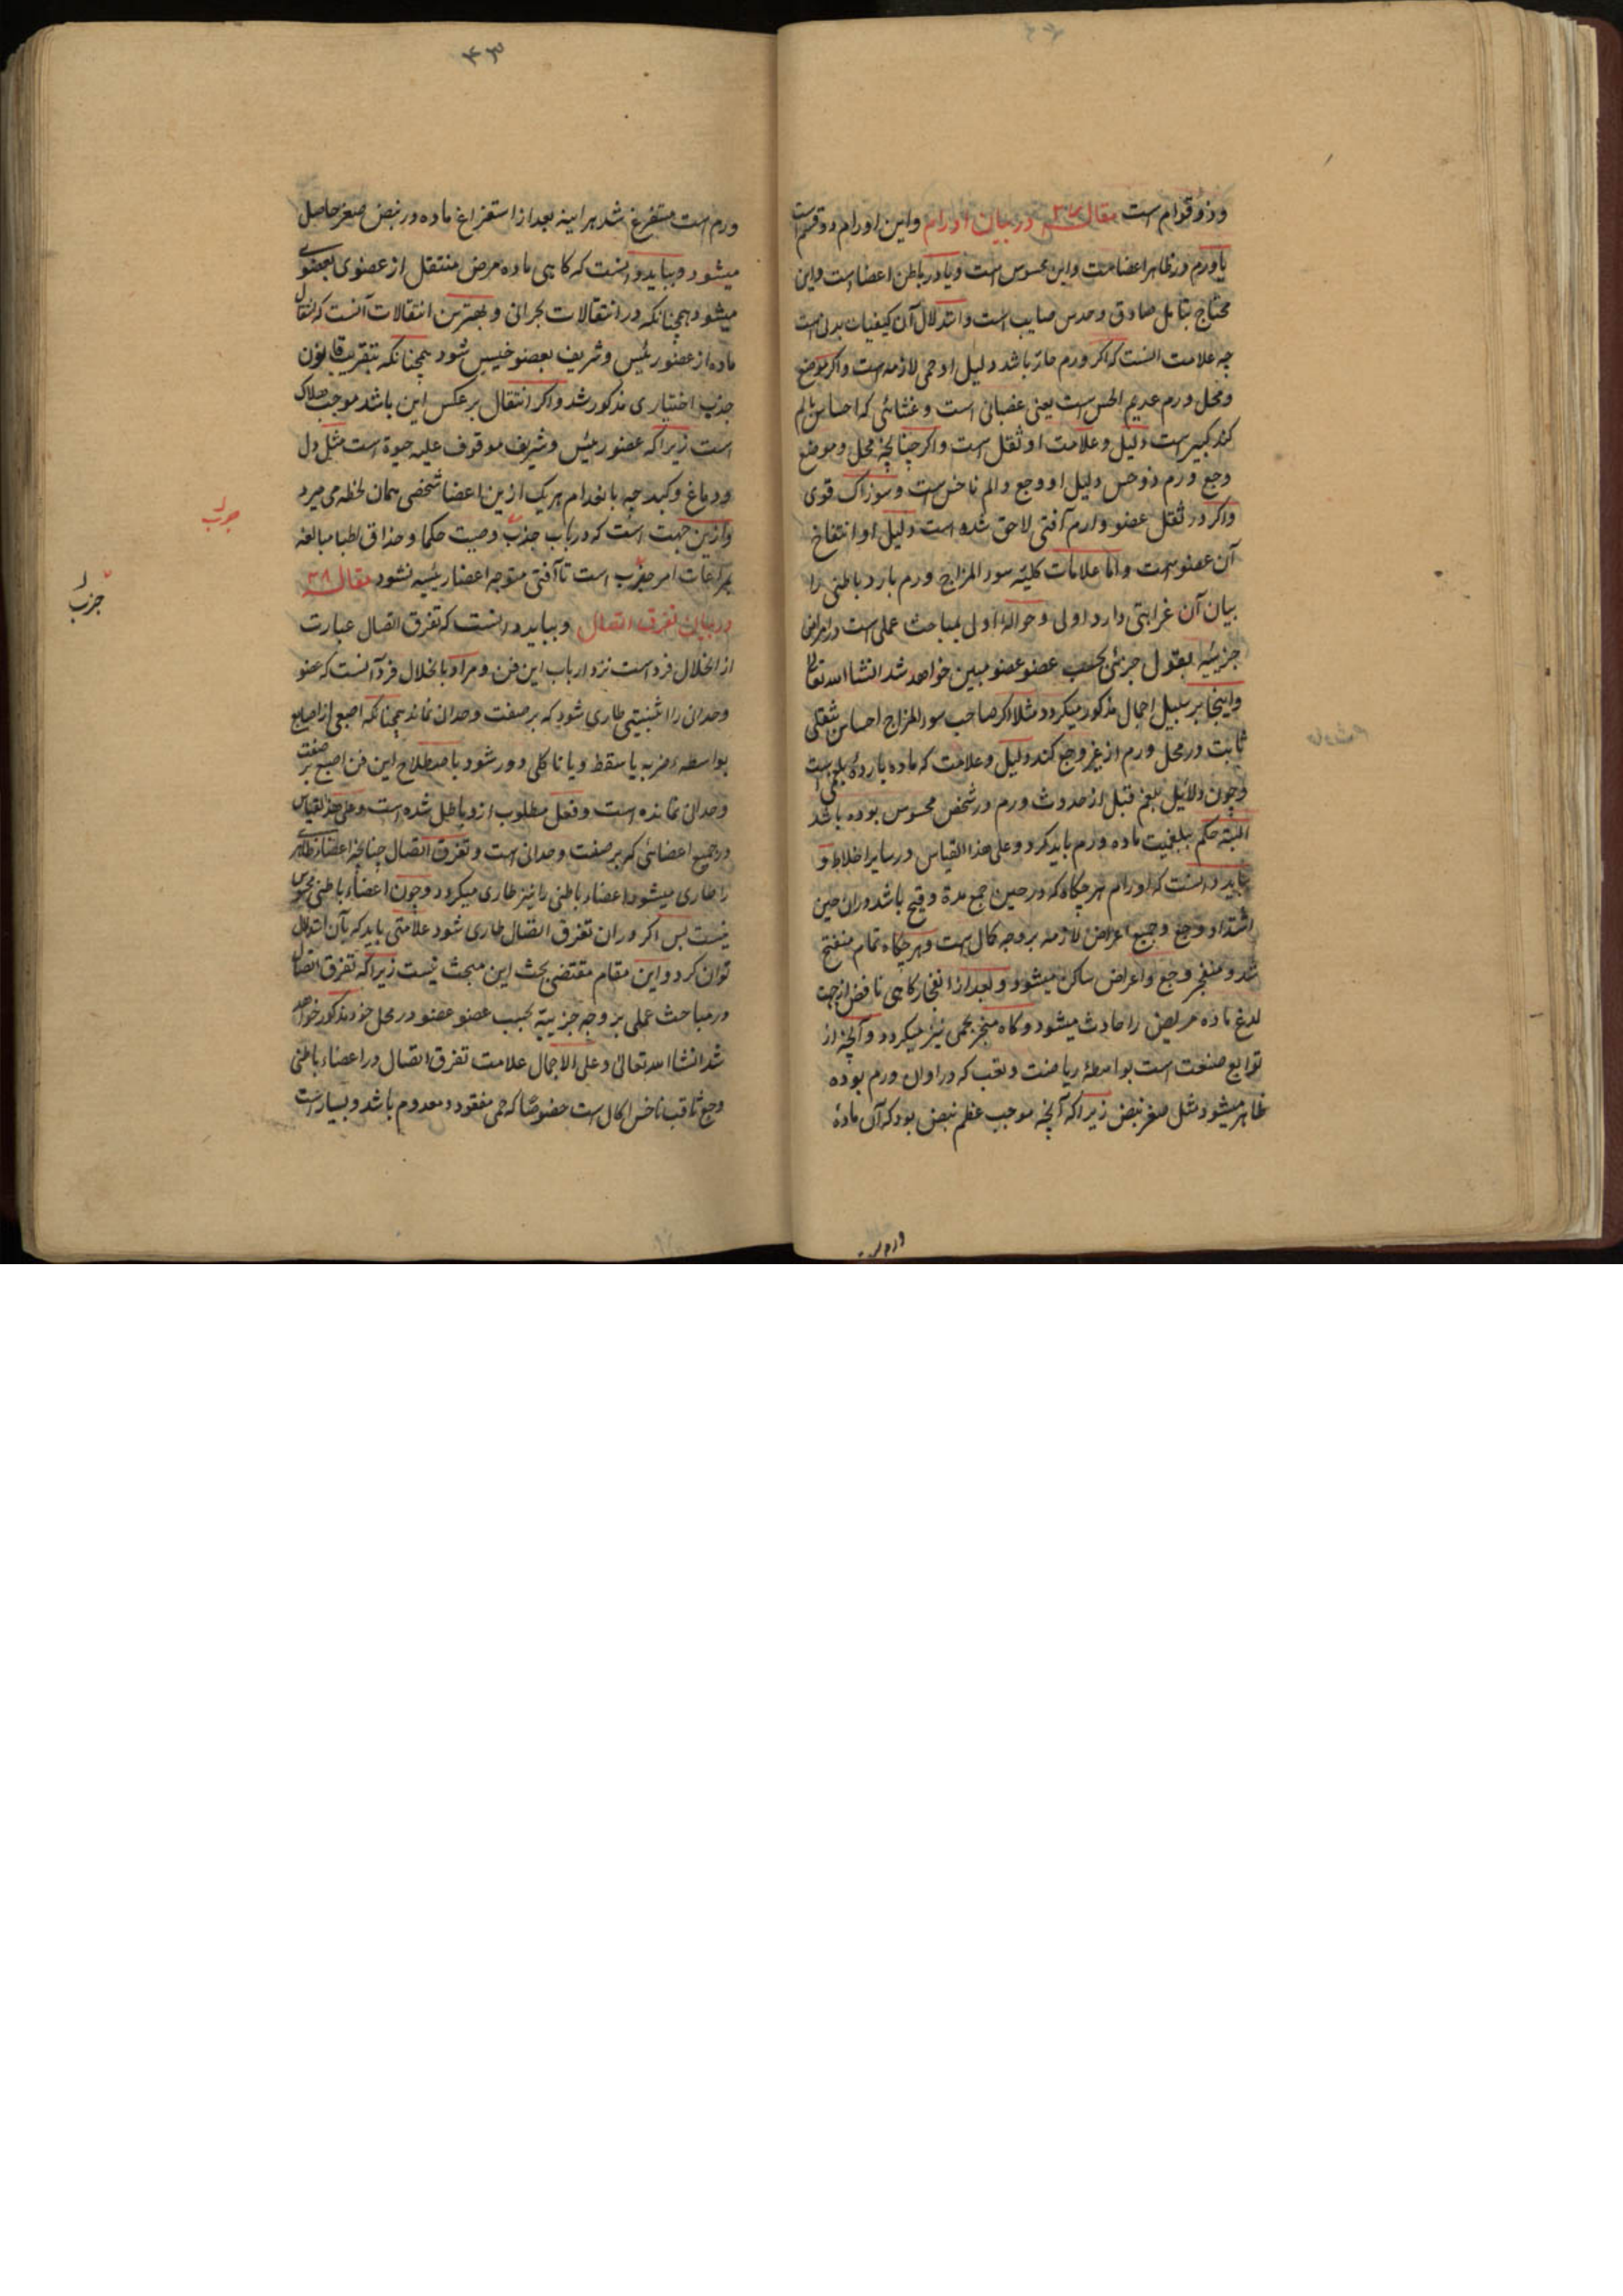 وذو قوام است مقاله ۳۷ در بیان اورام واین اورام دو قسم است
یا ورم در ظاهر اعضاست واین محسوس است ویا در باطن اعضا است واین
محتاج بتامل صادق وحدس صایب است واستدلال آن کیفیات بدنی است
چه علامت آنست که اکر ورم حار باشد دلیل او حمی لازمه است واکر موضع
ومحل ورم عدیم الحس است یعنی عصبانی است وغشائی که احساس بالم
کند کبیر است دلیل وعلامت او ثقل است واکر چنانچه محل وموضع
وجع ورم ذو حس دلیل او وجع والم ناخس است وسوزاک قوی
واکر در ثقل عضو وارم آفتی لاحق شده است دلیل او انتفاخ
آن عضو است واما علامات کلیه سوء المزاج ورم بارد باطنی را
بیان آن غرابتی دارد اولی وحواله اولی بمباحث عملی است در امراض
جزئیه بقول جزئی بحسب عضو عضو مبین خواهد شد انشاالله تعالی
واینجا بر سبیل اجمال مذکور میکردد مثلا اکر صاحب سوء المزاج احساس ثقلی
ثابت در محل ورم از غیر وجع کند دلیل وعلامت که ماده بارده بلغمی است
وچون دلائیل بلغم قبل از حدوث ورم در شخص محسوس بوده باشد
البته حکم ببلغمیت ماده ورم باید کرد وعلی هذا القیاس در سایر اخلاط و
بباید دانست که اورام هر چکاه که در حین جمع مدة وقیح باشد دران حین
اشتداد وجع وجمیع اعراض لازمه بر وجه کمال است وهر چکاه تمام منفتح
شد ومنفجر وجع واعراض ساکن میشود وبعد از انفجار کاهی نافض از جهت
لدغ ماده مریض را حادث میشود وکاه منجر بحمی نیز میکردد وآنچه از
توابع صنعت است بواسطهٔ ریاضت وتعب که در اوان ورم بوده
ظاهر میشود مثل صغر نبض زیرا که آنچه موجب عظم نبض بود که آن مادهٔ
ورم است
۴۳
ورم است مستفرغ شد هراینه بعد از استفراغ ماده در نبض صغر حاصل
میشود وبباید دانست که کاهی ماده مرض منتقل از عضوی بعضوی
میشود همچنانکه در انتقالات بحرانی وبهترین انتقالات آنست که انتقال
ماده از عضو رئیس وشریف بعضو خسیس شود همچنانکه بتقریب قانون
جذب اختیاری مذکور شد واکر انتقال بر عکس این باشد موجب هلاک
است زیرا که عضو رئیس وشریف موقوف علیه حیوة است مثل دل
ودماغ وکبد چه بانعدام هر یک ازین اعضا شخصی همان لحظه می میرد
وازین جهت است که در باب جذب وصیت حکما وحذاق اطبا مبالغه
بمراعات امر جذب است تا آفتی متوجه اعضا رئیسه نشود مقاله ۳۸
در بیان تفرق اتصال وبباید دانست که تفرق اتصال عبارت
از انحلال فرد است نزد ارباب این فن ومراد بانحلال فرد آنست که عضو
وحدانی را اثنینیتی طاری شود که بر صفت وحدانی نماند همچنانکه اصبعی از اصابع
بواسطه ضربه یا سقطه ویا تاکلی دور شود باصطلاح این فن اصبع بر صفت
وحدانی نمانده است وفعل مطلوب ازو باطل شده است وعلی هذا القیاس
در جمیع اعضائی که بر صفت وحدانی است وتفرق اتصال چنانچه اعضاء ظاهری
را طاری میشود اعضاء باطنی را نیز طاری میکردد وچون اعضاء باطنی محسوس
نیست پس اکر دران تفرق اتصال طاری شود علامتی باید که بآن استدلال
توان کرد واین مقام مقتضی بحث این مبحث نیست زیرا که تفرق اتصال
در مباحث عملی بر وجه جزئیة بحسب عضو عضو در محل خود مذکور خواهد
شد انشاالله تعالی وعلی الاجمال علامت تفرق اتصال در اعضاء باطنی
وجع ثاقب ناخس اکال است خصوصا که حمی مفقود ومعدوم باشد وبسیار است
جذب